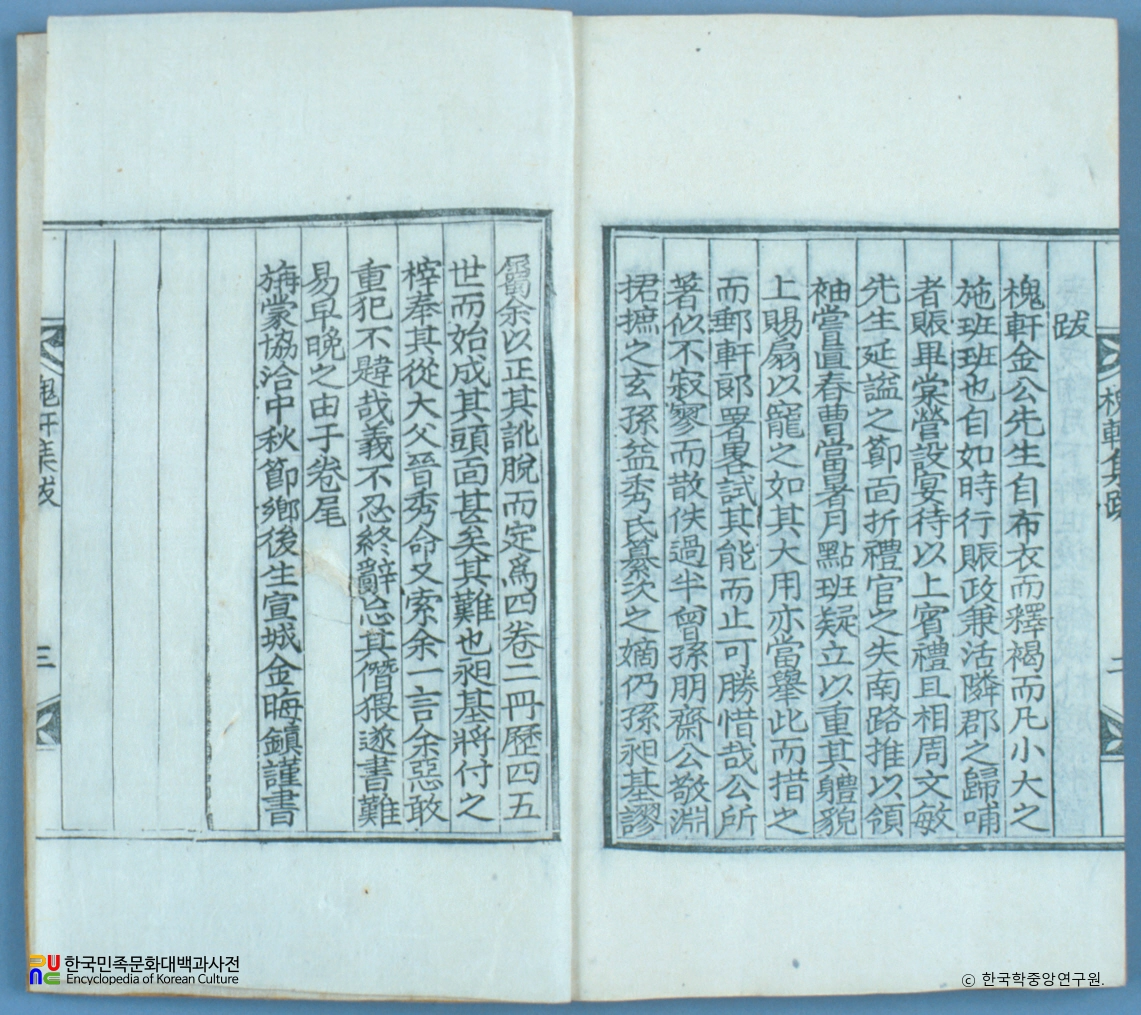 跋
槐軒金公先生自布衣而釋褐而凡小大之
施班班也自如時行賑政兼活隣郡之歸哺
者賑畢棠營設宴待以上賓禮且相周文敏
先生延諡之節面折禮官之失南路推以領
袖嘗直春曹當暑月點班疑立以重其軆貌
上賜扇以寵之如其大用亦當舉此而措之
而郵軒郞署畧試其能而止可勝惜哉公所
著似不寂寥而散佚過半曾孫朋齋公敬淵
捃摭之玄孫益秀氏纂次之嫡仍孫昶基謬
槐軒集跋
二
屬余以正其訛脫而定爲四卷二冊歷四五
世而始成其頭面甚矣其難也昶基將付之
榟奉其從大父晉秀命又索余一言余惡敢
重犯不韙哉義不忍終辭忘其僭猥遂書難
易早晚之由于卷尾
旃蒙協洽中秋節鄉後生宣城金晦鎭謹書
槐軒集跋
三
한국민족문화대백과사전
Encyclopedia of Korean Culture
ⓒ 한국학중앙연구원.